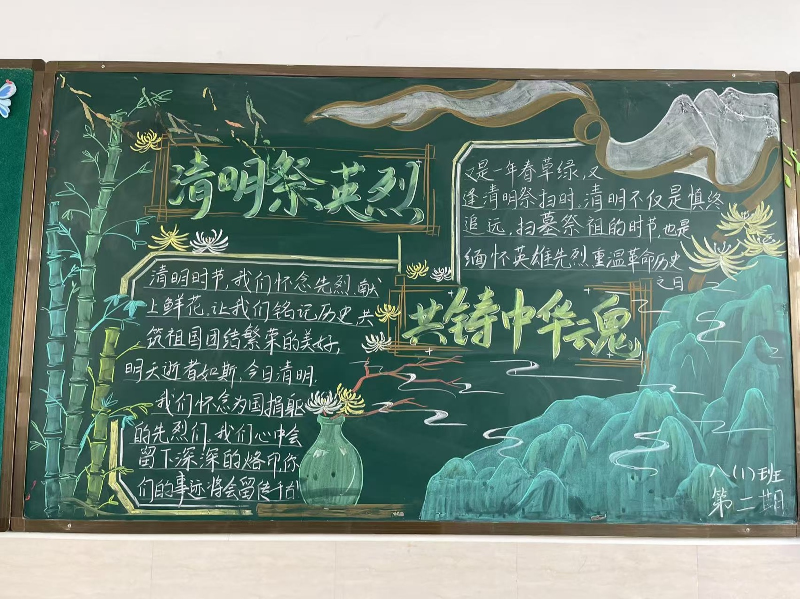 清明祭英烈
又是一年春草绿,又
逢清明祭扫时,清明不仅是慎终
追远,扫墓祭祖的时节,也是
缅怀英雄先烈重温革命历史
之日
清明时节,我们怀念先烈献
上鲜花,让我们铭记历史共
筑祖国团结繁荣的美好,
明天逝者如斯,今日清明.
我们怀念为国捐躯
的先烈们,我们心中会
留下深深的烙印,你
们的事迹将会留传千古
共铸中华魂
八(1)班
第二期